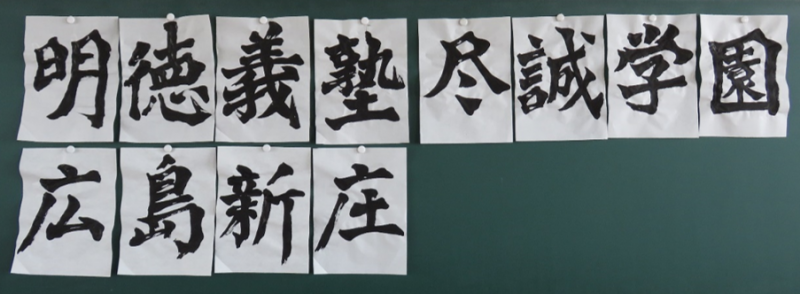 明徳義塾 尽誠学園
広島新庄